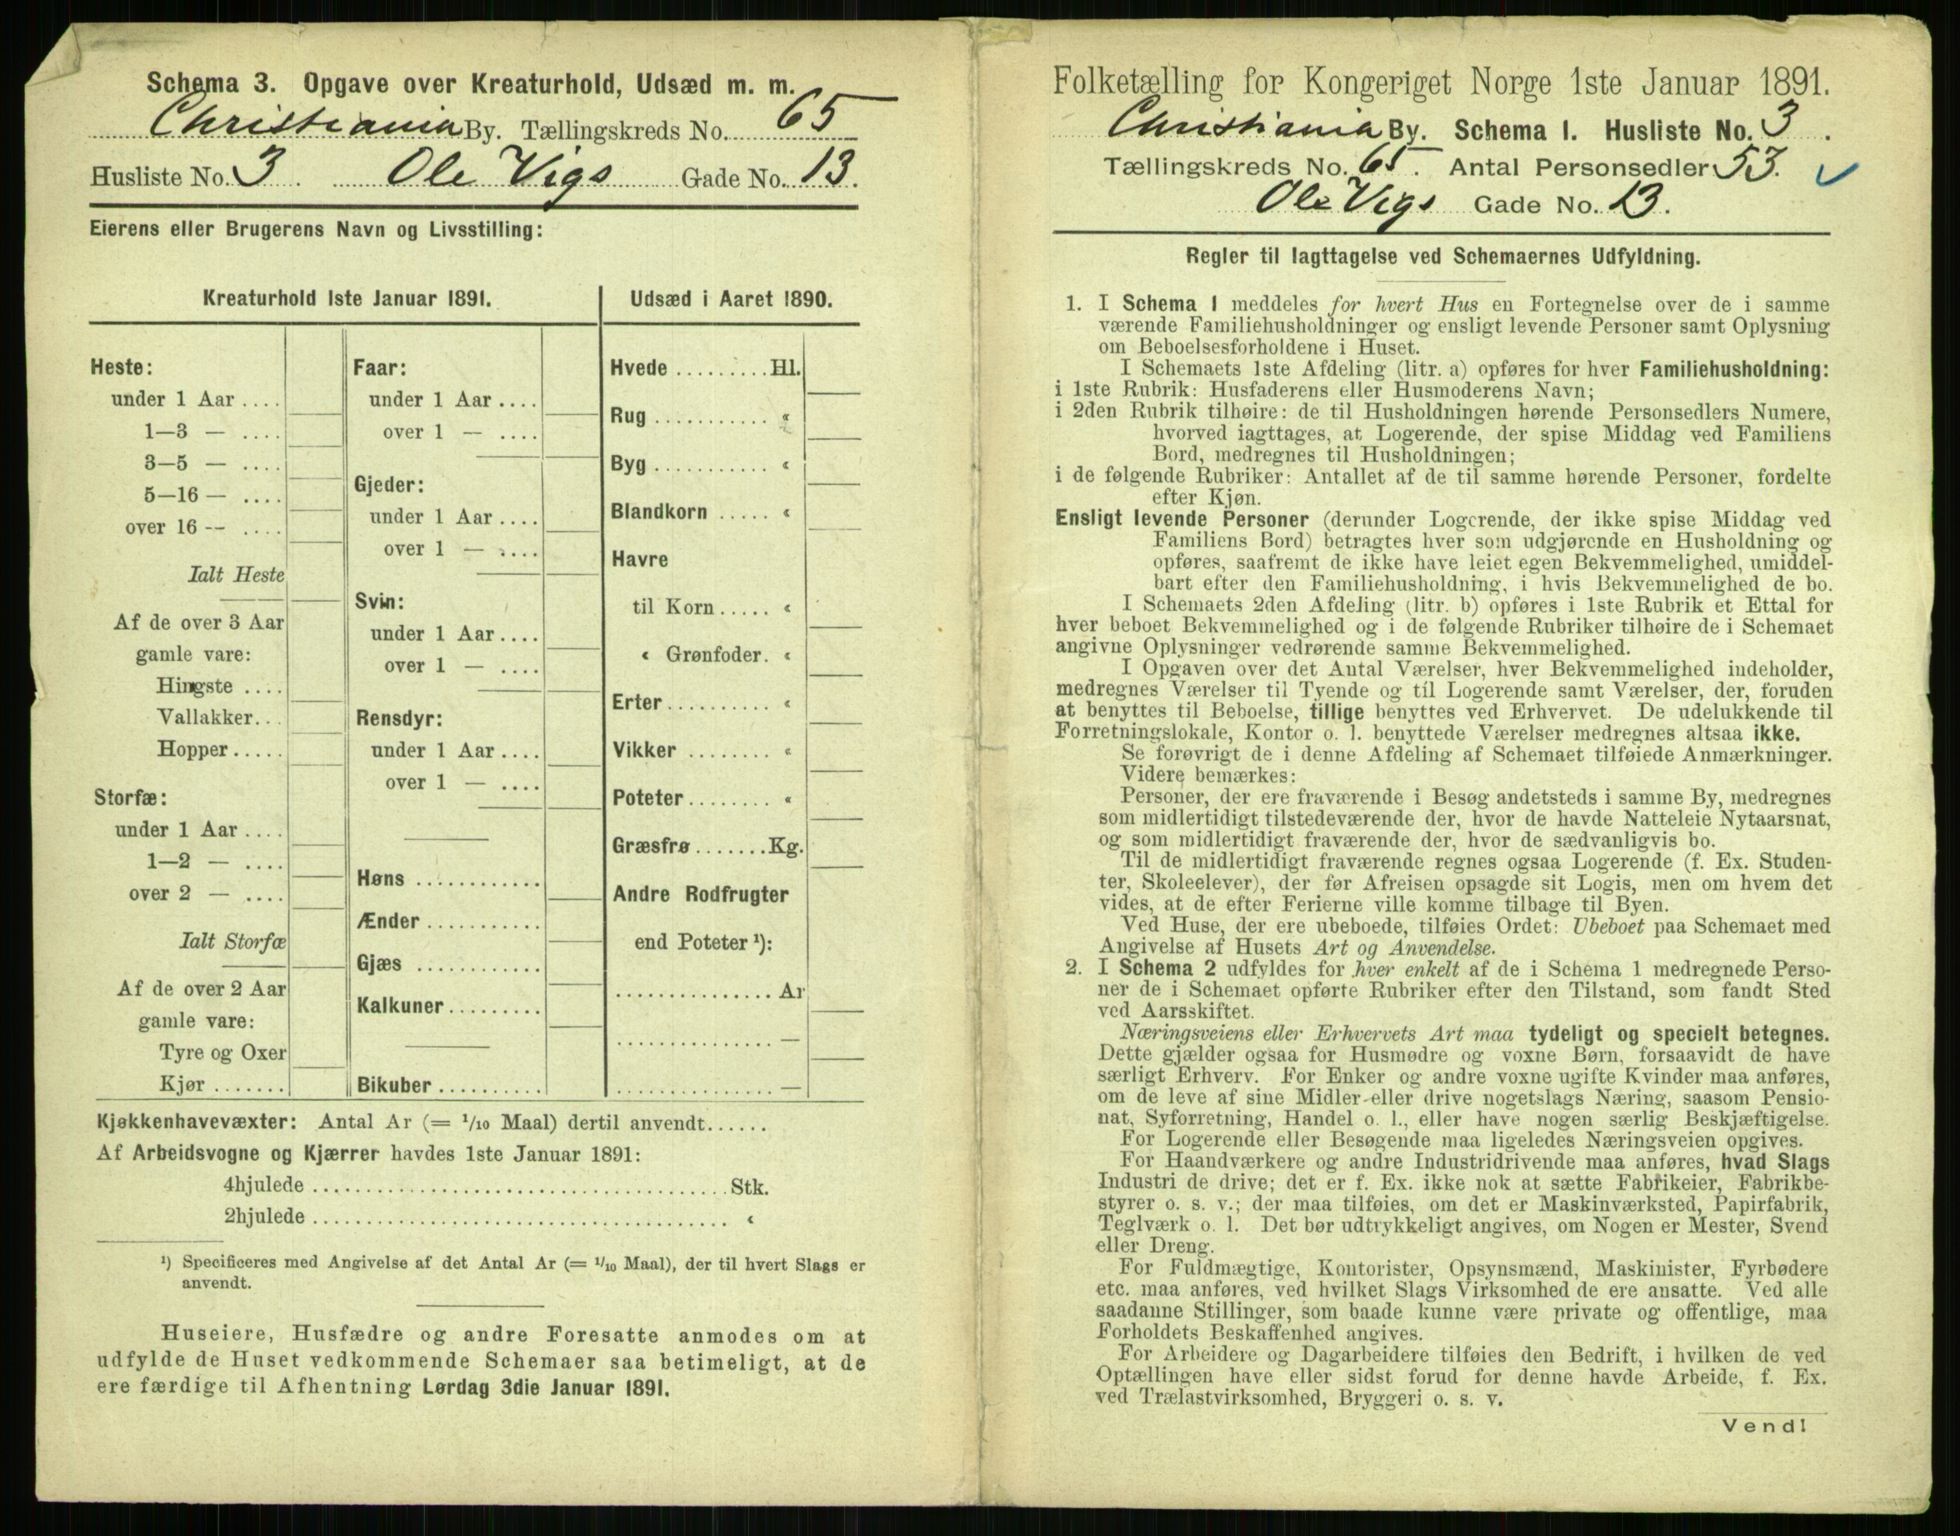 Schema 3. Opgave over Kreaturhold, Udsæd m. m.
Christiania By. Tællingskreds No. 65
Husliste No. 3. Ole Vigs Gade No. 13.
Eierens eller Brugerens Navn og Livsstilling:
Kreaturhold 1ste Januar 1891.
Heste:
under 1 Aar ....
1—3 — ....
3—5 — ....
5—16 — ....
over 16 -- ....
Ialt Heste
Af de over 3 Aar
gamle vare:
Hingste ....
Vallakker...
Hopper.....
Storfæ:
under 1 Aar ....
1—2 — ....
over 2 — ....
Ialt Storfæ
Af de over 2 Aar
gamle vare:
Tyre og Oxer
Kjør .......
Faar:
under 1 Aar ....
over 1 — ....
Gjeder:
under 1 Aar ....
over 1 — ....
Svin:
under 1 Aar ....
over 1 — ....
Rensdyr:
under 1 Aar ....
over 1 — ....
Høns ............
Ænder ...........
Gjæs ............
Kalkuner.........
Bikuber ..........
Udsæd i Aaret 1890.
Hvede .........Hl.
Rug ........... «
Byg ........... «
Blandkorn ..... «
Havre
til Korn ..... «
« Grønfoder. «
Erter.......... «
Vikker ........ «
Poteter........ «
Græsfrø .......Kg.
Andre Rodfrugter
end Poteter ¹):
............... Ar
............... —
............... —
Kjøkkenhavevæxter: Antal Ar (= 1/10 Maal) dertil anvendt......
Af Arbeidsvogne og Kjærrer havdes 1ste Januar 1891:
4hjulede ........................................ Stk.
2hjulede ........................................ «
¹) Specificeres med Angivelse af det Antal Ar (= 1/10 Maal), der til hvert Slags er
anvendt.
Huseiere, Husfædre og andre Foresatte anmodes om at
udfylde de Huset vedkommende Schemaer saa betimeligt, at de
ere færdige til Afhentning Lørdag 3die Januar 1891.
Folketælling for Kongeriget Norge 1ste Januar 1891.
Christiania By. Schema 1. Husliste No. 3.
Tællingskreds No. 65. Antal Personsedler 53.
Ole Vigs Gade No. 13.
Regler til Iagttagelse ved Schemaernes Udfyldning.
1. I Schema 1 meddeles for hvert Hus en Fortegnelse over de i samme
værende Familiehusholdninger og ensligt levende Personer samt Oplysning
om Beboelsesforholdene i Huset.
I Schemaets 1ste Afdeling (litr. a) opføres for hver Familiehusholdning:
i 1ste Rubrik: Husfaderens eller Husmoderens Navn;
i 2den Rubrik tilhøire: de til Husholdningen hørende Personsedlers Numere,
hvorved iagttages, at Logerende, der spise Middag ved Familiens
Bord, medregnes til Husholdningen;
i de følgende Rubriker: Antallet af de til samme hørende Personer, fordelte
efter Kjøn.
Ensligt levende Personer (derunder Logerende, der ikke spise Middag ved
Familiens Bord) betragtes hver som udgjørende en Husholdning og
opføres, saafremt de ikke have leiet egen Bekvemmelighed, umiddel-
bart efter den Familiehusholdning, i hvis Bekvemmelighed de bo.
I Schemaets 2den Afdeling (litr. b) opføres i 1ste Rubrik et Ettal for
hver beboet Bekvemmelighed og i de følgende Rubriker tilhøire de i Schemaet
angivne Oplysninger vedrørende samme Bekvemmelighed.
I Opgaven over det Antal Værelser, hver Bekvemmelighed indeholder,
medregnes Værelser til Tyende og til Logerende samt Værelser, der, foruden
at benyttes til Beboelse, tillige benyttes ved Erhvervet. De udelukkende til
Forretningslokale, Kontor o. l. benyttede Værelser medregnes altsaa ikke.
Se forøvrigt de i denne Afdeling af Schemaet tilføiede Anmærkninger.
Videre bemærkes:
Personer, der ere fraværende i Besøg andetsteds i samme By, medregnes
som midlertidigt tilstedeværende der, hvor de havde Natteleie Nytaarsnat,
og som midlertidigt fraværende der, hvor de sædvanligvis bo.
Til de midlertidigt fraværende regnes ogsaa Logerende (f. Ex. Studen-
ter, Skoleelever), der før Afreisen opsagde sit Logis, men om hvem det
vides, at de efter Ferierne ville komme tilbage til Byen.
Ved Huse, der ere ubeboede, tilføies Ordet: Ubeboet paa Schemaet med
Angivelse af Husets Art og Anvendelse.
2. I Schema 2 udfyldes for hver enkelt af de i Schema 1 medregnede Perso-
ner de i Schemaet opførte Rubriker efter den Tilstand, som fandt Sted
ved Aarsskiftet.
Næringsveiens eller Erhvervets Art maa tydeligt og specielt betegnes.
Dette gjælder ogsaa for Husmødre og voxne Børn, forsaavidt de have
særligt Erhverv. For Enker og andre voxne ugifte Kvinder maa anføres,
om de leve af sine Midler eller drive nogetslags Næring, saasom Pensio-
nat, Syforretning, Handel o. l., eller have nogen særlig Beskjæftigelse.
For Logerende eller Besøgende maa ligeledes Næringsveien opgives.
For Haandværkere og andre Industridrivende maa anføres, hvad Slags
Industri de drive; det er f. Ex. ikke nok at sætte Fabrikeier, Fabrikbe-
styrer o. s. v.; der maa tilføies, om det er Maskinværksted, Papirfabrik,
Teglværk o. l. Det bør udtrykkeligt angives, om Nogen er Mester, Svend
eller Dreng.
For Fuldmægtige, Kontorister, Opsynsmænd, Maskinister, Fyrbødere
etc. maa anføres, ved hvilket Slags Virksomhed de ere ansatte. Ved alle
saadanne Stillinger, som baade kunne være private og offentlige, maa
Forholdets Beskaffenhed angives.
For Arbeidere og Dagarbeidere tilføies den Bedrift, i hvilken de ved
Optællingen have eller sidst forud for denne havde Arbeide, f. Ex.
ved Trælastvirksomhed, Bryggeri o. s. v.
Vend!